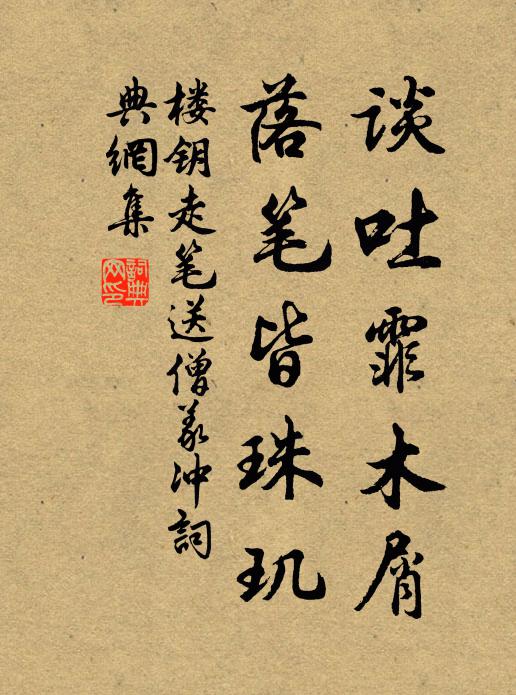 谈吐霏木屑
落笔皆珠玑
楼钥走笔送僧义冲詞
典網集
詞典
网印